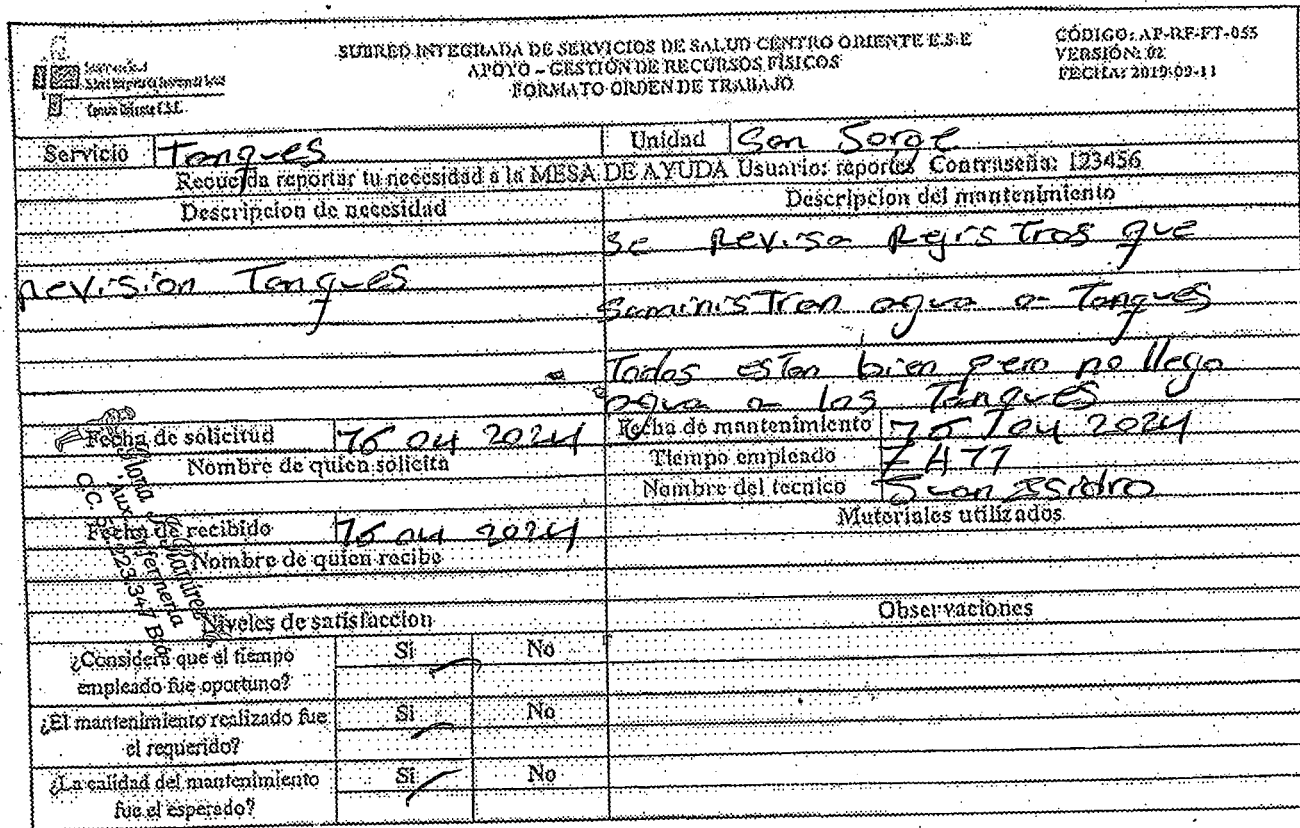 SUBRED INTEGRADA DE SERVICIOS DE SALUD CENTRO ORIENTE E.S.E
APOYO – GESTIÓN DE RECURSOS FÍSICOS
FORMATO ORDEN DE TRABAJO
CÓDIGO: AP-RF-FT-055
VERSIÓN: 02
FECHA: 2019-09-11
Servicio Tanques Unidad San Jorge
Recuerda reportar tu necesidad a la MESA DE AYUDA Usuario: reportes Contraseña: 123456
Descripcion de necesidad
revision Tanques
Descripcion del mantenimiento
se Revisa Rejistros que
Saministran agua a Tanques
Todos estan bien pero no llega
agua a los Tanques
Fecha de solicitud 16 04 2024
Fecha de mantenimiento 16 / 04 2024
Nombre de quien solicita
Tiempo empleado
Nombre del tecnico Juan Isidro
Fecha de recibido 16 04 2024
Materiales utilizados
Nombre de quien recibe
Niveles de satisfaccion
Observaciones
¿Considera que el tiempo
empleado fue oportuno?
Si No
¿El mantenimiento realizado fue
el requerido?
Si No
¿La calidad del mantenimiento
fue el esperado?
Si No